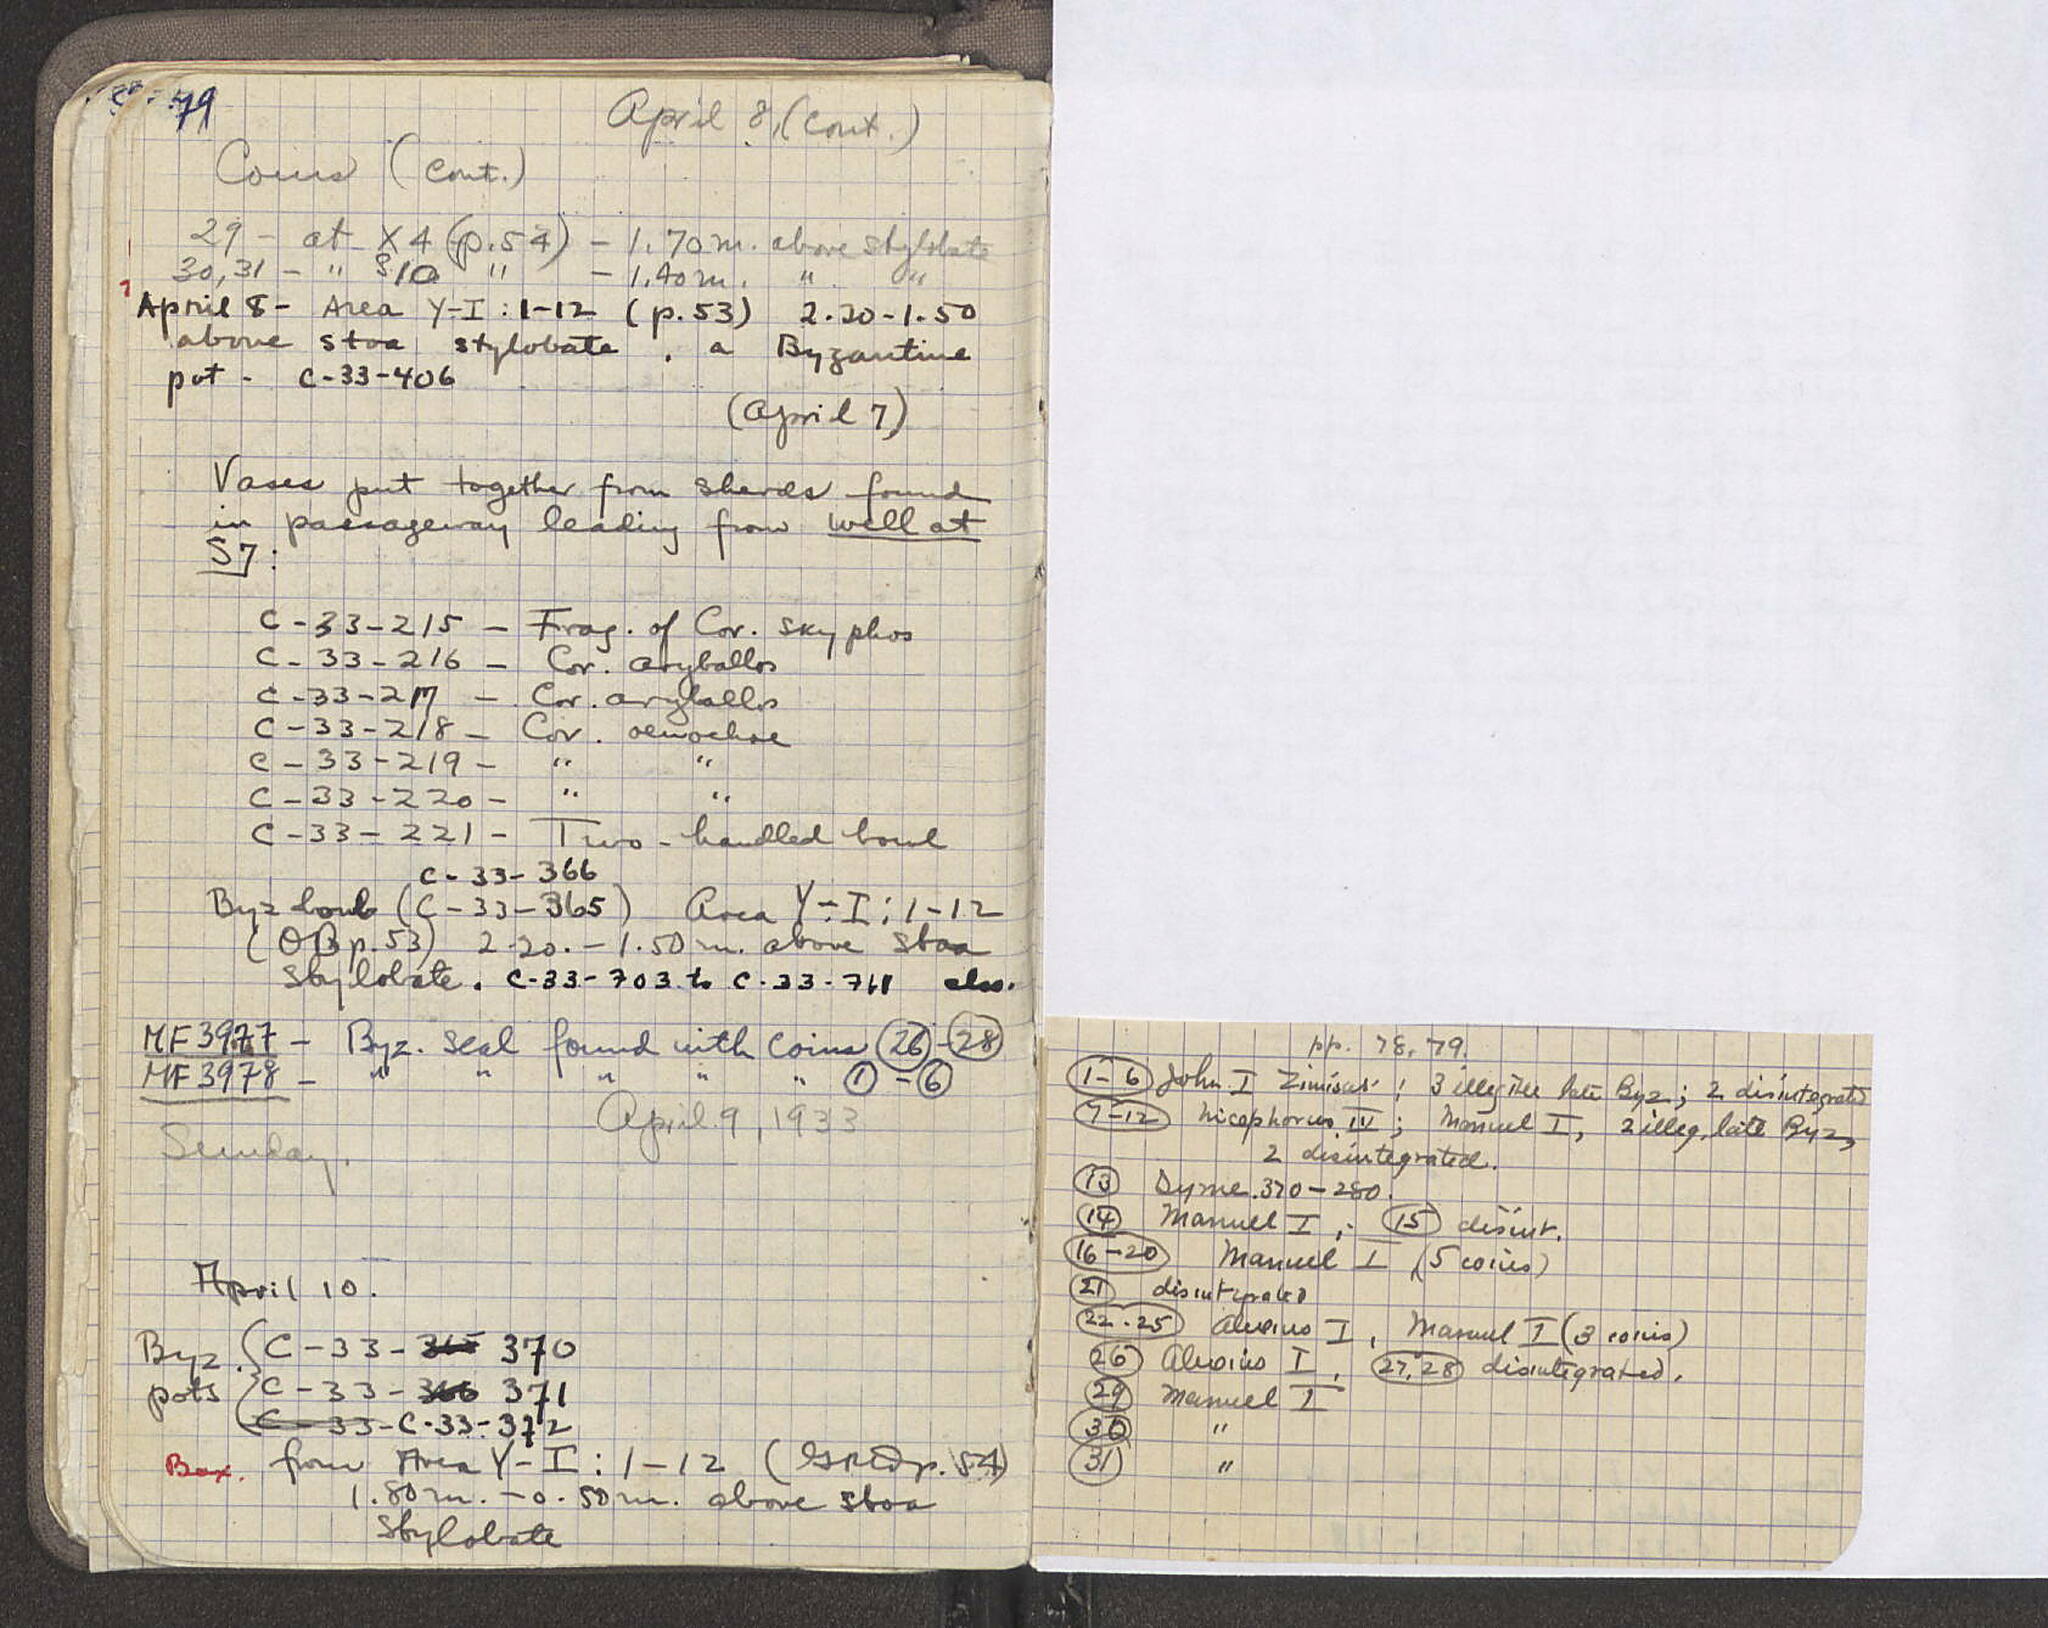 79
April 8, (cont.)
Coins (cont.)
29 - at X4 (p.54) - 1.70 m. above stylobate
30,31 - " S10 " - 1.40 m. " "
April 8 - Area Y-I : 1-12 (p.53) 2.20-1.50
above stoa stylobate . a Byzantine
pot - C-33-406
(April 7)
Vases put together from sherds found
in passageway leading from well at
S7 :
C-33-215 - Frag. of Cor. skyphos
C-33-216 - Cor. aryballos
C-33-217 - Cor. aryballos
C-33-218 - Cor. oenochoe
C-33-219 - " "
C-33-220 - " "
C-33-221 - Two-handled bowl
C-33-366
Byz bowl (C-33-365) Area Y-I : 1-12
(OB p.53) 2.20. - 1.50 m. above stoa
stylobate. C-33-703 to C-33-711 also.
MF3977 - Byz. seal found with coins 26 - 28
MF3978 - " " " " " 1 - 6
April 9, 1933
Sunday.
April 10.
Byz. C-33-365 370
pots C-33-366 371
C-33- C-33-372
Box. from Area Y-I : 1-12 ( p. 54)
1.80 m. - 0.50 m. above stoa
stylobate
pp. 78, 79.
1-6 John I Zimisces ; 3 illegible late Byz ; 2 disintegrated
7-12 Nicephorus III ; Manuel I, 2 illeg. late Byz,
2 disintegrated.
13 Dyme. 370-280.
14 Manuel I ; 15 disint.
16-20 Manuel I (5 coins)
21 disintegrated
22-25 Alexius I, Manuel I (3 coins)
26 Alexius I, 27,28 disintegrated.
29 Manuel I
30 "
31 "